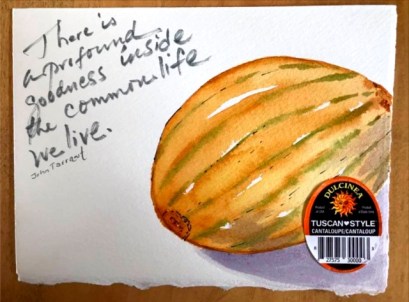 There is
a profound
goodness inside
the common life
we live.
John Tarrant
DULCINEA
TUSCAN♥STYLE
CANTALOUPE/CANTALOUP